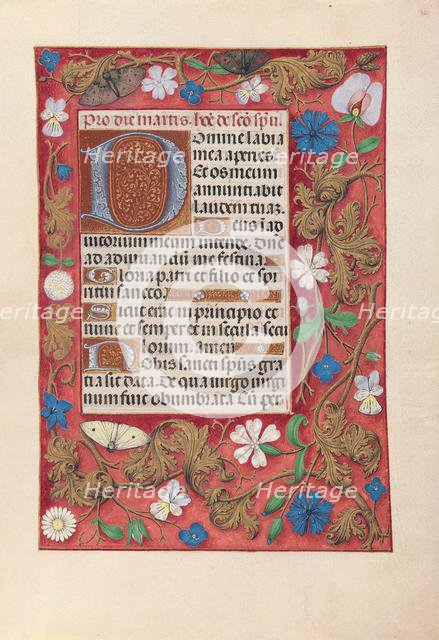 Pro die martis. hore de sco spu.
Domine labia
mea aperies
Et os meum
annuntiabit
laudem tuaz.
Deus i ad
iutorium meum intende. Dne
ad adiuuandum me festina
Gloria patri et filio et spi
ritui sancto.
Sicut erat in principio et
nunc et semper et in secula seculorum amen
Nobis sancti spus gra
tia sit data. De qua uirgo uirgi
num fuit obumbrata. Cu per
Heritage Images